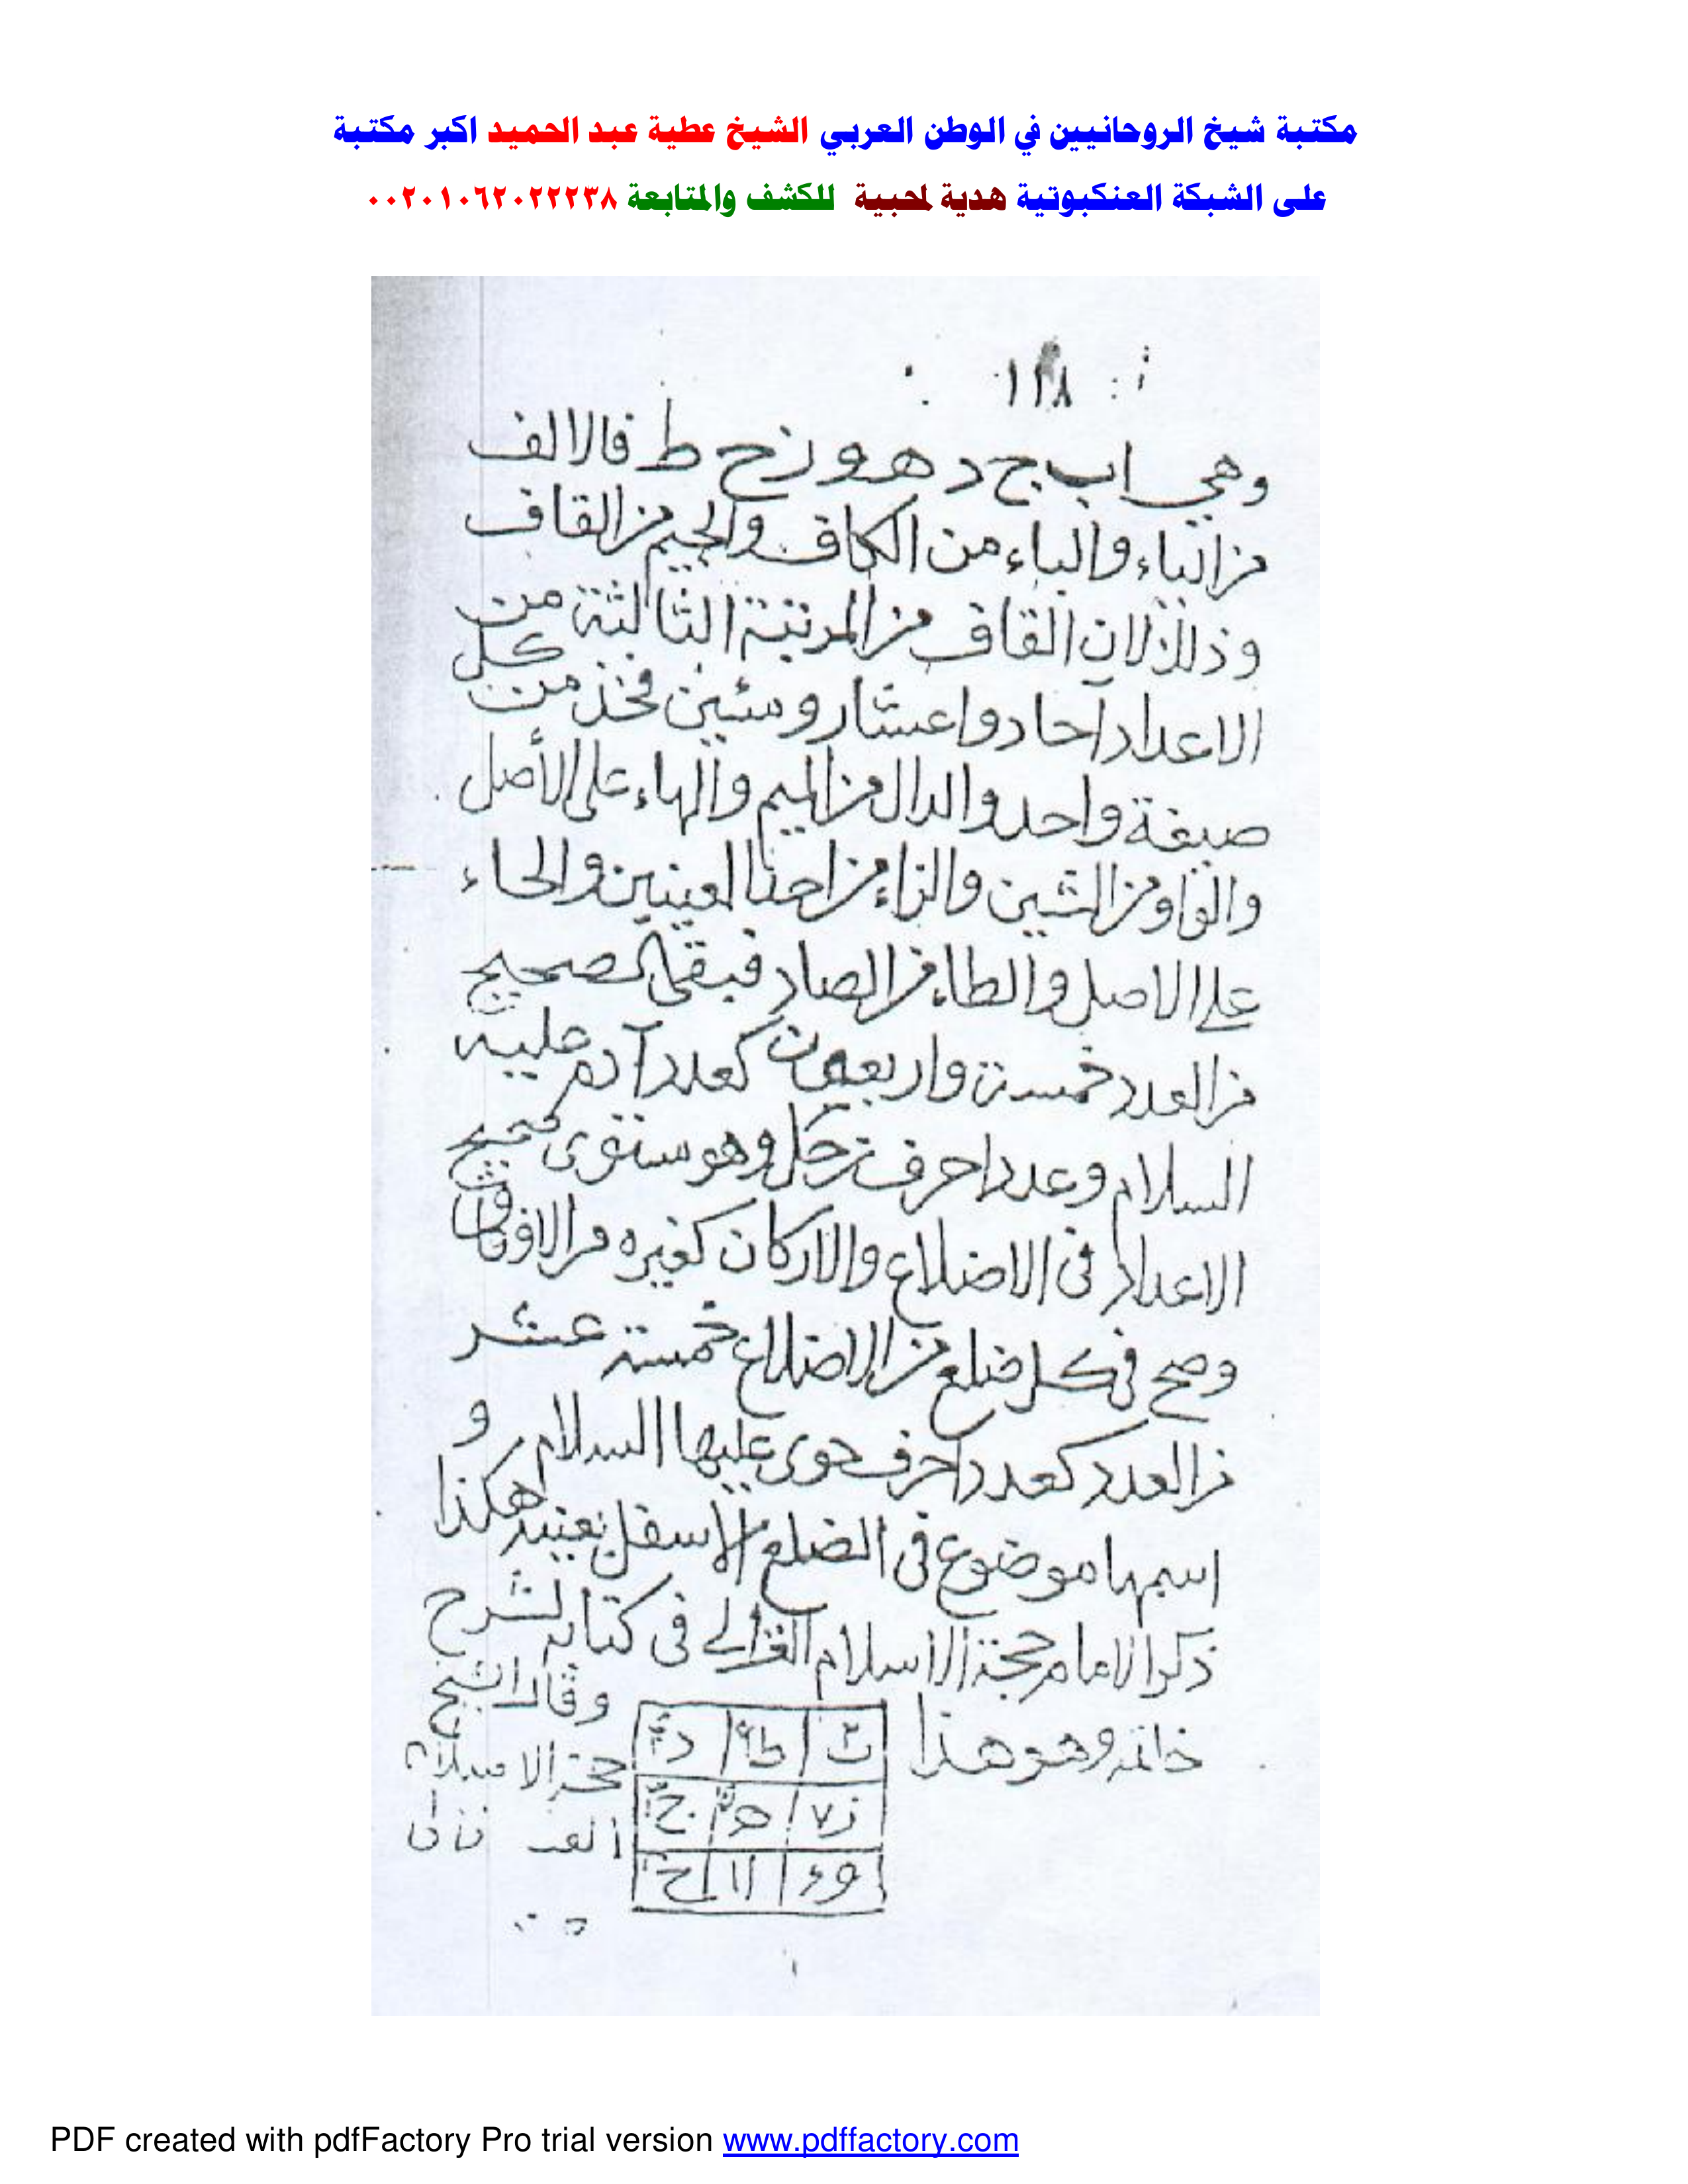 مكتبة شيخ الروحانيين في الوطن العربي الشيخ عطية عبد الحميد اكبر مكتبة
على الشبكة العنكبوتية هدية لمحبية للكشف والمتابعة ٠٠٢٠١٠٦٢٠٢٢٢٣٨
١١٨
وهي ا ب ج د ه و ز ح ط فالالف
من الياء والباء من الكاف والجيم من القاف
وذلك لان القاف من المرتبة الثالثة من
الاعداد آحاد واعشار ومئين فخذ من كل
صيغة واحد والدال من الميم والهاء على الأصل
والواو من الشين والزاء من احدا العينين والحاء
على الاصل والطاء من الصاد فبقى الصحيح
من العدد خمسة واربعون كعدد آدم عليه
السلام وعدد احرف زحل وهو ستوى جميع
الاعداد في الاضلاع والاركان كغيره من الاوفاق
وصح في كل ضلع من الاضلاع خمسة عشر
من العدد كعدد احرف حوى عليها السلام و
اسمها موضوع في الضلع الاسفل بعينه هكذا
ذكر الامام حجة الاسلام الغزالي في كتابه لشرح
خاتمه وهو هذا
ب ٢ ط ٩ د ٤
ز ٧ ه ٥ ج ٣
و ٦ ا ١ ح ٨
وقال الشيخ
حجة الاسلام